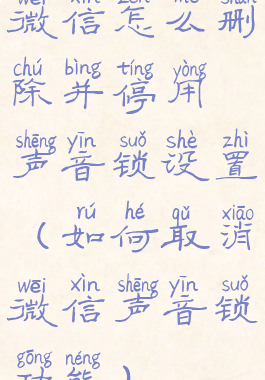 wēi xìn zěn me shān
微信怎么删
chú bìng tíng yòng
除并停用
shēng yīn suǒ shè zhì
声音锁设置
rú hé qǔ xiāo
（如何取消
wēi xìn shēng yīn suǒ
微信声音锁
gōng néng
功能）